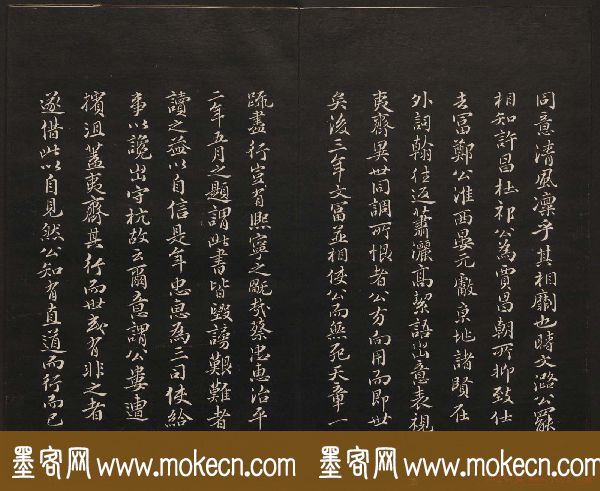 同意清風凛乎其相廟也時文潞公罷
相知許昌杜祁公為賈昌朝所抑致仕
去富鄭公淮西晏元獻京地諸賢在
外詞翰往返蕭灑高潔語出意表視
夷齊異世同調所恨者公方向用而即世
矣後三年文富並相使公而無死天章一
疏盡行豈有熙寧之
二年五月之題謂此書皆毀謗艱難者
讀之益以自信是年忠惠為三司使給
事以讒出守杭故云爾意謂公屢遭
擯沮蓋夷齊其行而世或有非之者
遂借此以自見然公知有直道而行而已
墨客网 www.mokecn.com 墨客网 www.mokecn.com